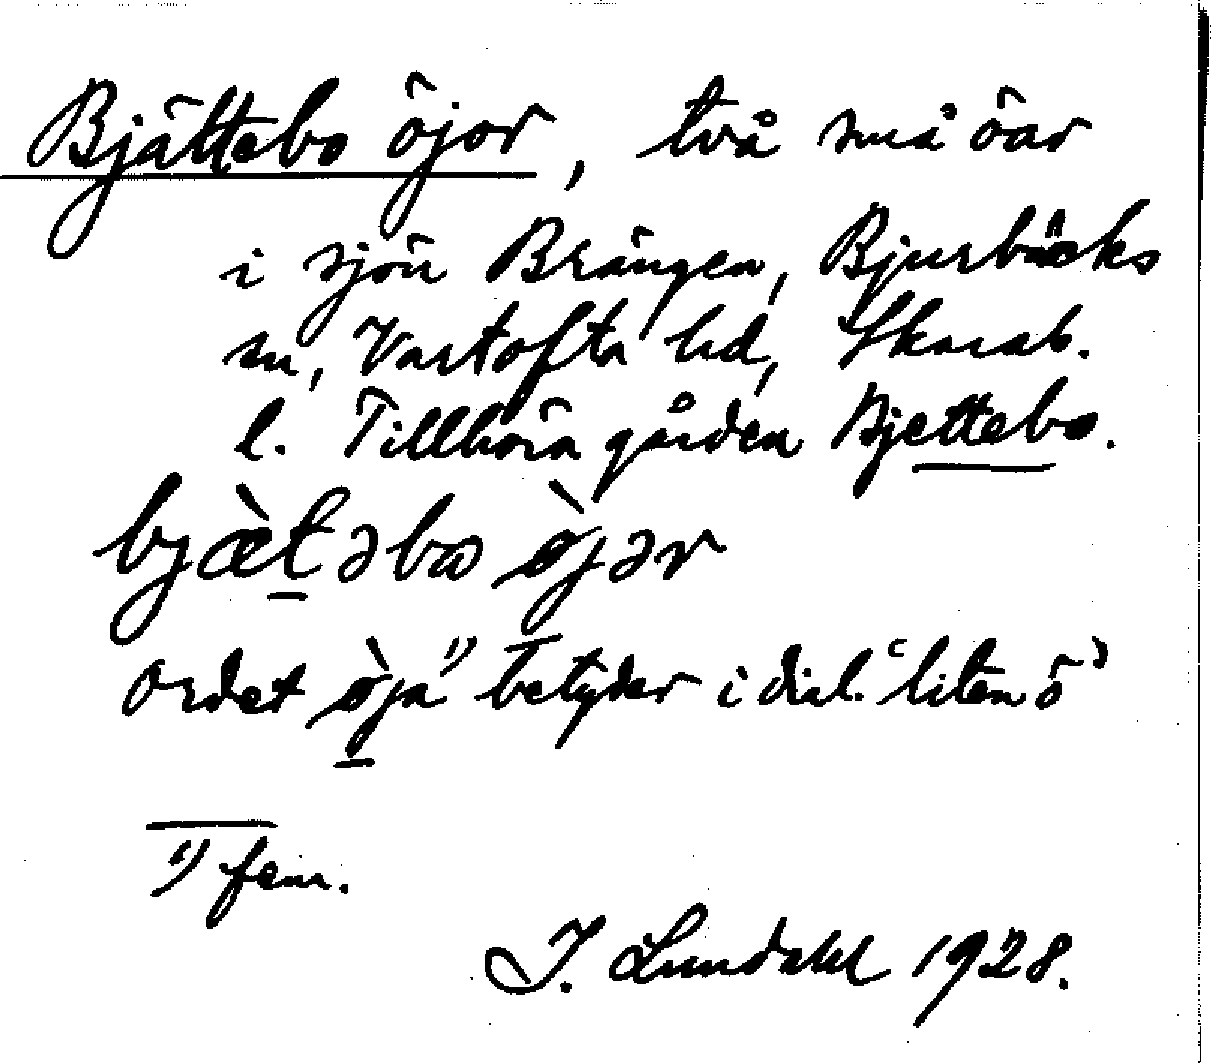 Bjättebo öjor, två små öar
i sjön Brängen, Bjurbäcks
sn, Vartofta hd, Skarab.
l. Tillhöra gården Bjettebo.
bjæ̀t̠əbω ø̀jər
ordet ø̀ja¹⁾ betyder i dial. 'liten ö'
¹⁾ fem.
I. Lundahl 1928.